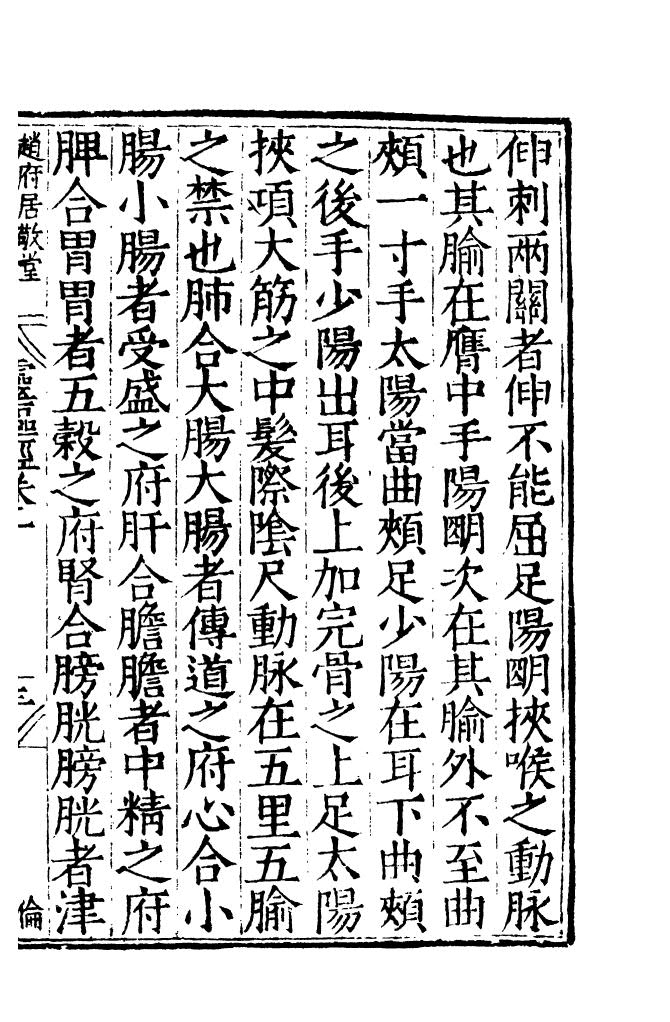 伸刺兩關者伸不能屈足陽明挾喉之動脉
也其腧在膺中手陽明次在其腧外不至曲
頰一寸手太陽當曲頰足少陽在耳下曲頰
之後手少陽出耳後上加完骨之上足太陽
挾項大筋之中髮際陰尺動脉在五里五腧
之禁也肺合大腸大腸者傳道之府心合小
腸小腸者受盛之府肝合膽膽者中精之府
脾合胃胃者五穀之府腎合膀胱膀胱者津
趙府居敬堂 靈樞經卷一 三 倫